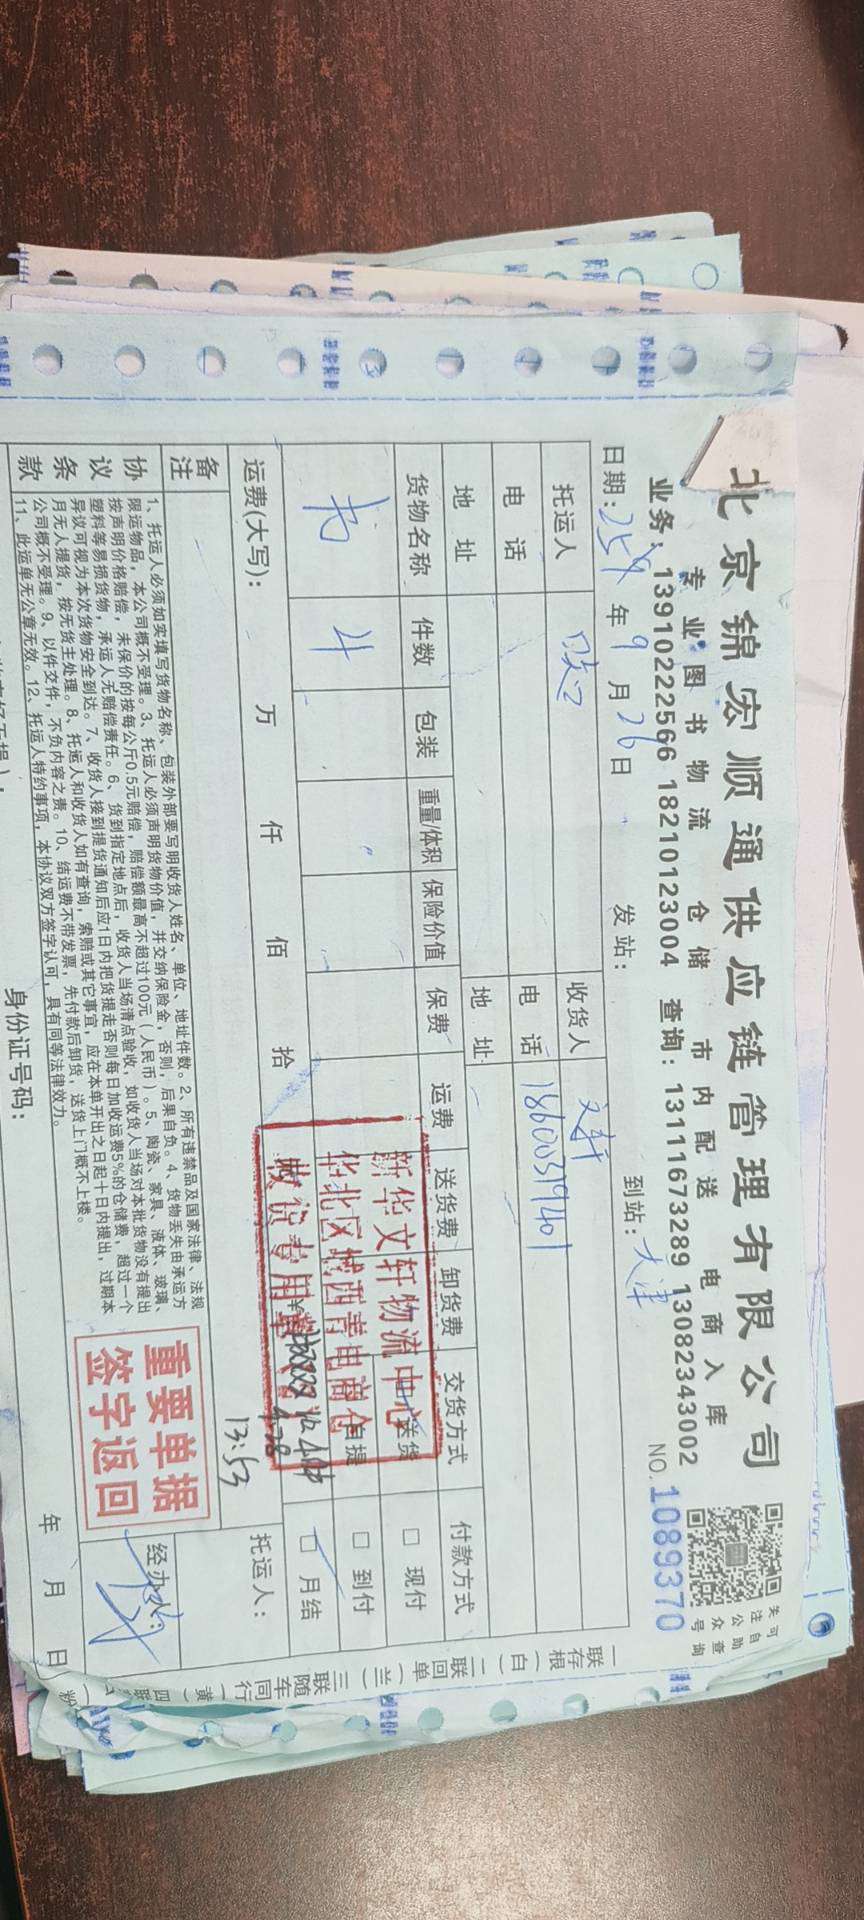 北京锦宏顺通供应链管理有限公司
专业图书物流 仓储 市内配送 电商入库
业务：13910222566 18210123004 查询：13111673289 13082343002
关注公众号
可自助查询
日期：25年9月26日 发站： 到站：天津 NO.1089370
托运人 收货人 文轩
电话 电话 18600319401
地址 地址
货物名称 件数 包装 重量/体积 保险价值 保费 运费 送货费 卸货费 交货方式 付款方式
书 4 送货 □ 现付
自提 □ 到付
□ 月结
新华文轩物流中心
华北区域西青电商仓
收货专用章
运费(大写)： 万 仟 佰 拾
13:53
托运人：
备注
重要单据
签字返回
经办人：
协议条款
1、托运人必须如实填写货物名称、包装外部要写明收货人姓名，单位、地址件数。2、所有违禁品及国家法律、法规
限运物品，本公司概不受理。3、托运人必须声明货物价值，并交纳保险金，否则，后果自负。4、货物丢失由承运方
按声明价格赔偿，未保价的按每公斤0.5元赔偿，赔偿额最高不超过100元（人民币）。5、陶瓷、家具、液体、玻璃、
塑料等易损货物，承运人无赔偿责任。6、货到指定地点后，收货人当场清点验收，如收货人当场对本批货物没有提出
异议可视为本次货物安全到达。7、收货人接到提货通知后应1日内把货提走否则每日加收运费5%的仓储费，超过一个
月无人提货，按无货主处理。8、托运人和收货人如有查询，索赔或其它事宜，应在本单开出之日起十日内提出，过期本
公司概不受理。9、以件交件，不负内容之责。10、结运费不带发票，先付款后卸货，送货上门概不上楼。
11、此运单无公章无效。12、托运人特约事项，本协议双方签字认可，具有同等法律效力。
身份证号码： 年 月 日
一存根(白) 二联回单(兰) 三联随车同行(黄) 四联